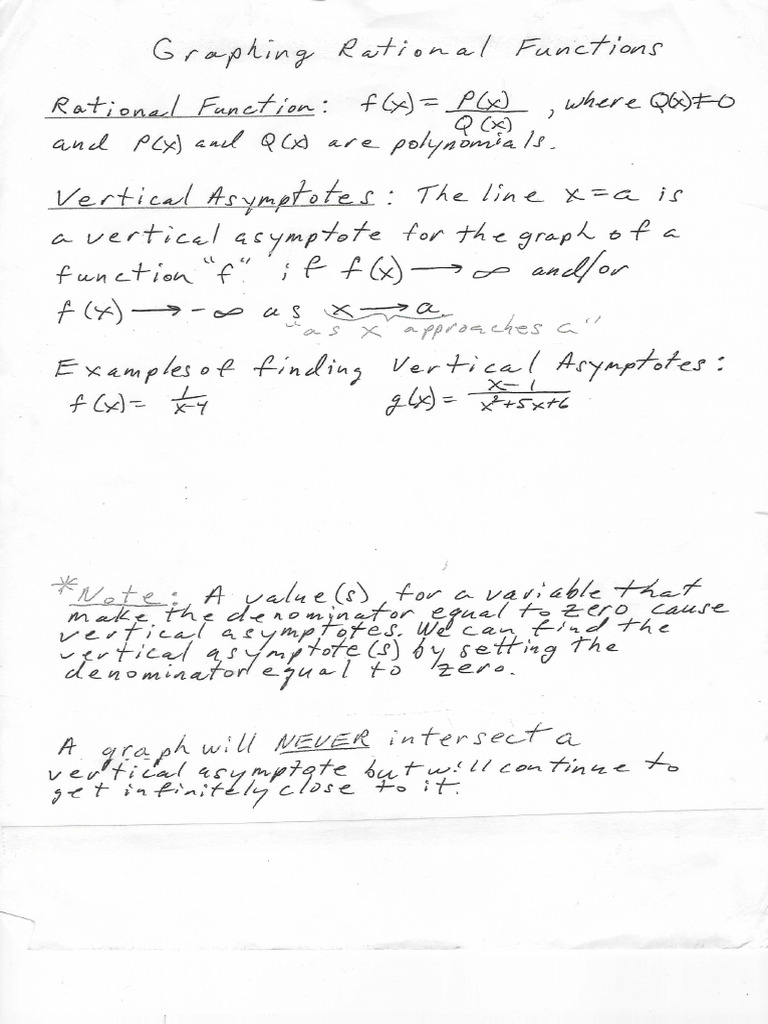 Graphing Rational Functions
Rational Function: f(x) = P(x)/Q(x), where Q(x)≠0
and P(x) and Q(x) are polynomials.
Vertical Asymptotes: The line x=a is
a vertical asymptote for the graph of a
function "f" if f(x) → ∞ and/or
f(x) → -∞ as x → a.
"as x approaches a"
Examples of finding Vertical Asymptotes:
f(x) = 1/(x-4) g(x) = (x-1)/(x²+5x+6)
*Note: A value(s) for a variable that
make the denominator equal to zero cause
vertical asymptotes. We can find the
vertical asymptote(s) by setting the
denominator equal to zero.
A graph will NEVER intersect a
vertical asymptote but will continue to
get infinitely close to it.